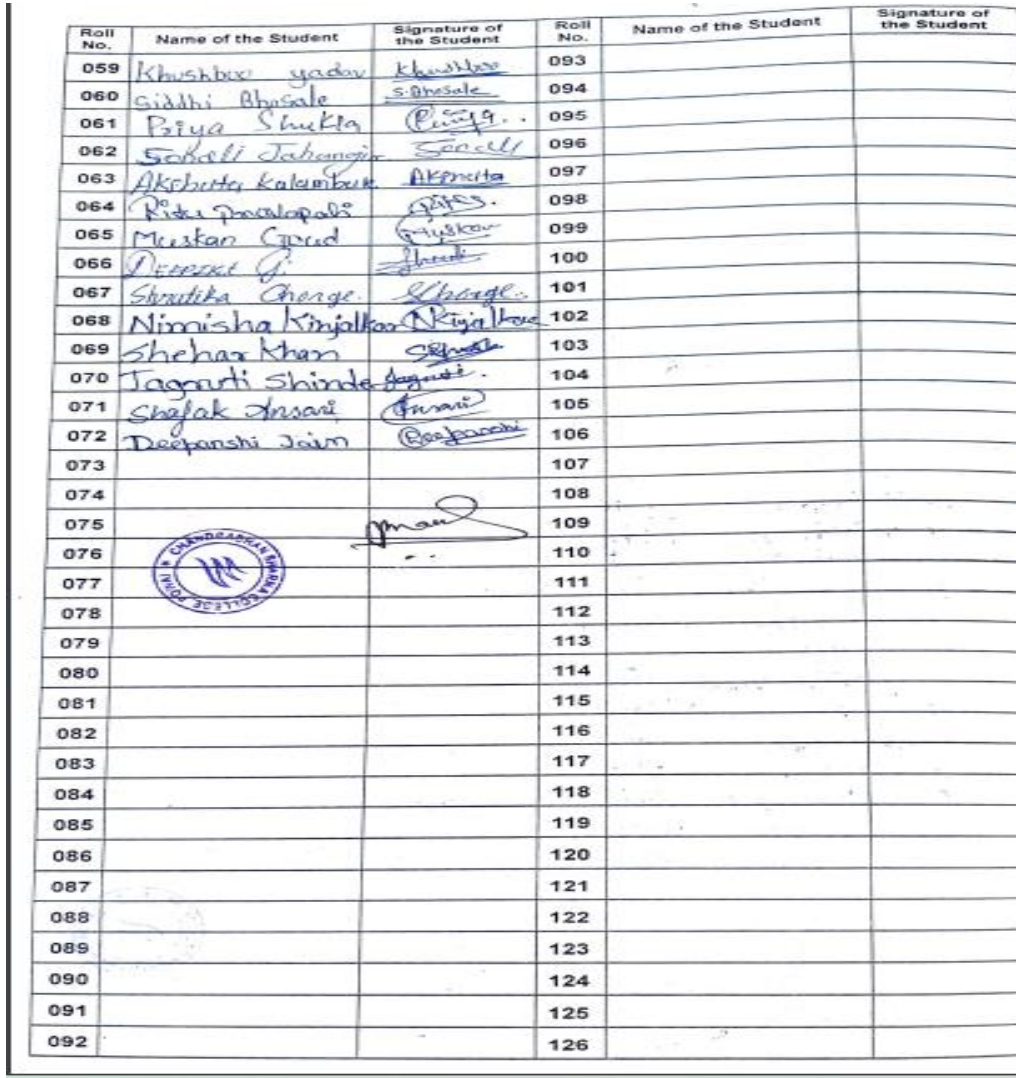 Roll No. Name of the Student Signature of the Student Roll No. Name of the Student Signature of the Student
059 Khushboo yadav Khushboo 093
060 Siddhi Bhosale S.Bhosale 094
061 Priya Shukla Priya.. 095
062 Sonali Jahangir Sonali 096
063 Akshata Kalambe Akshata 097
064 Ritu 098
065 Muskan Goud Muskan 099
066 G. 100
067 Shrutika Ghorge. SGhorge. 101
068 Nimisha Kinjalkar NKinjalkar 102
069 Shehar Khan 103
070 Jagruti Shinde Jagruti. 104
071 Shafak Ansari Ansari 105
072 Deepanshi Jain Deepanshi 106
073 107
074 108
075 109
076 110
077 111
CHANDRABHAN SHARMA COLLEGE POWAI
078 112
079 113
080 114
081 115
082 116
083 117
084 118
085 119
086 120
087 121
088 122
089 123
090 124
091 125
092 126